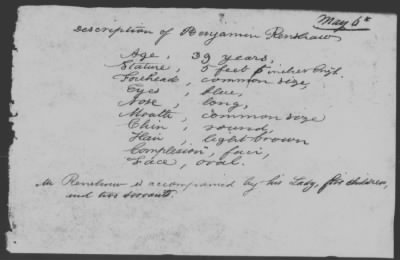 May 6th
Description of Benjamin Renshaw
Age, 39 years,
Stature, 5 feet inches Engl.
Forehead, common size,
Eyes, blue,
Nose, long,
Mouth, common size
Chin, round,
Hair, light brown
Complexion, fair,
Face, oval.
Mr Renshaw is accompanied by his Lady, five children,
and two servants.